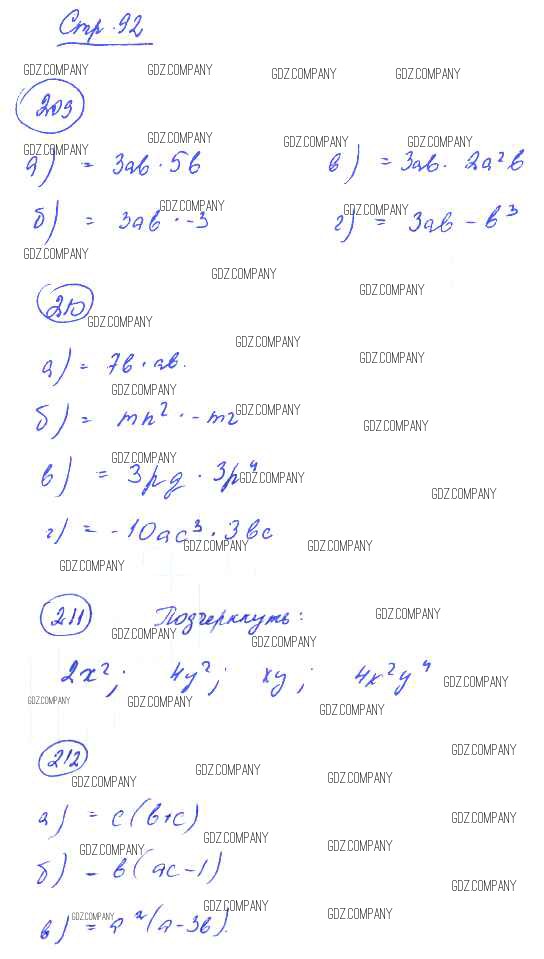 Стр. 92
GDZ.COMPANY GDZ.COMPANY GDZ.COMPANY GDZ.COMPANY
209
GDZ.COMPANY GDZ.COMPANY GDZ.COMPANY GDZ.COMPANY
а) = 3ab · 5b в) = 3ab · 2a²b
GDZ.COMPANY GDZ.COMPANY
б) = 3ab · -3 г) = 3ab - b³
GDZ.COMPANY
GDZ.COMPANY
GDZ.COMPANY
210
GDZ.COMPANY
GDZ.COMPANY
GDZ.COMPANY
а) = 7b · ab.
GDZ.COMPANY
GDZ.COMPANY
б) = mn² · -m2
GDZ.COMPANY
GDZ.COMPANY
в) = 3pq · 3p⁴
GDZ.COMPANY
GDZ.COMPANY
г) = -10ac³ · 3bc
GDZ.COMPANY GDZ.COMPANY
GDZ.COMPANY
211 Подчеркнуть:
GDZ.COMPANY
GDZ.COMPANY GDZ.COMPANY
2x²; 4y²; xy; 4x²y⁴
GDZ.COMPANY
GDZ.COMPANY GDZ.COMPANY
GDZ.COMPANY
212
GDZ.COMPANY
GDZ.COMPANY
GDZ.COMPANY GDZ.COMPANY
а) = c(b+c)
GDZ.COMPANY
GDZ.COMPANY
GDZ.COMPANY GDZ.COMPANY
б) = b(ac-1)
GDZ.COMPANY
GDZ.COMPANY
GDZ.COMPANY GDZ.COMPANY
в) = a²(a-3b).